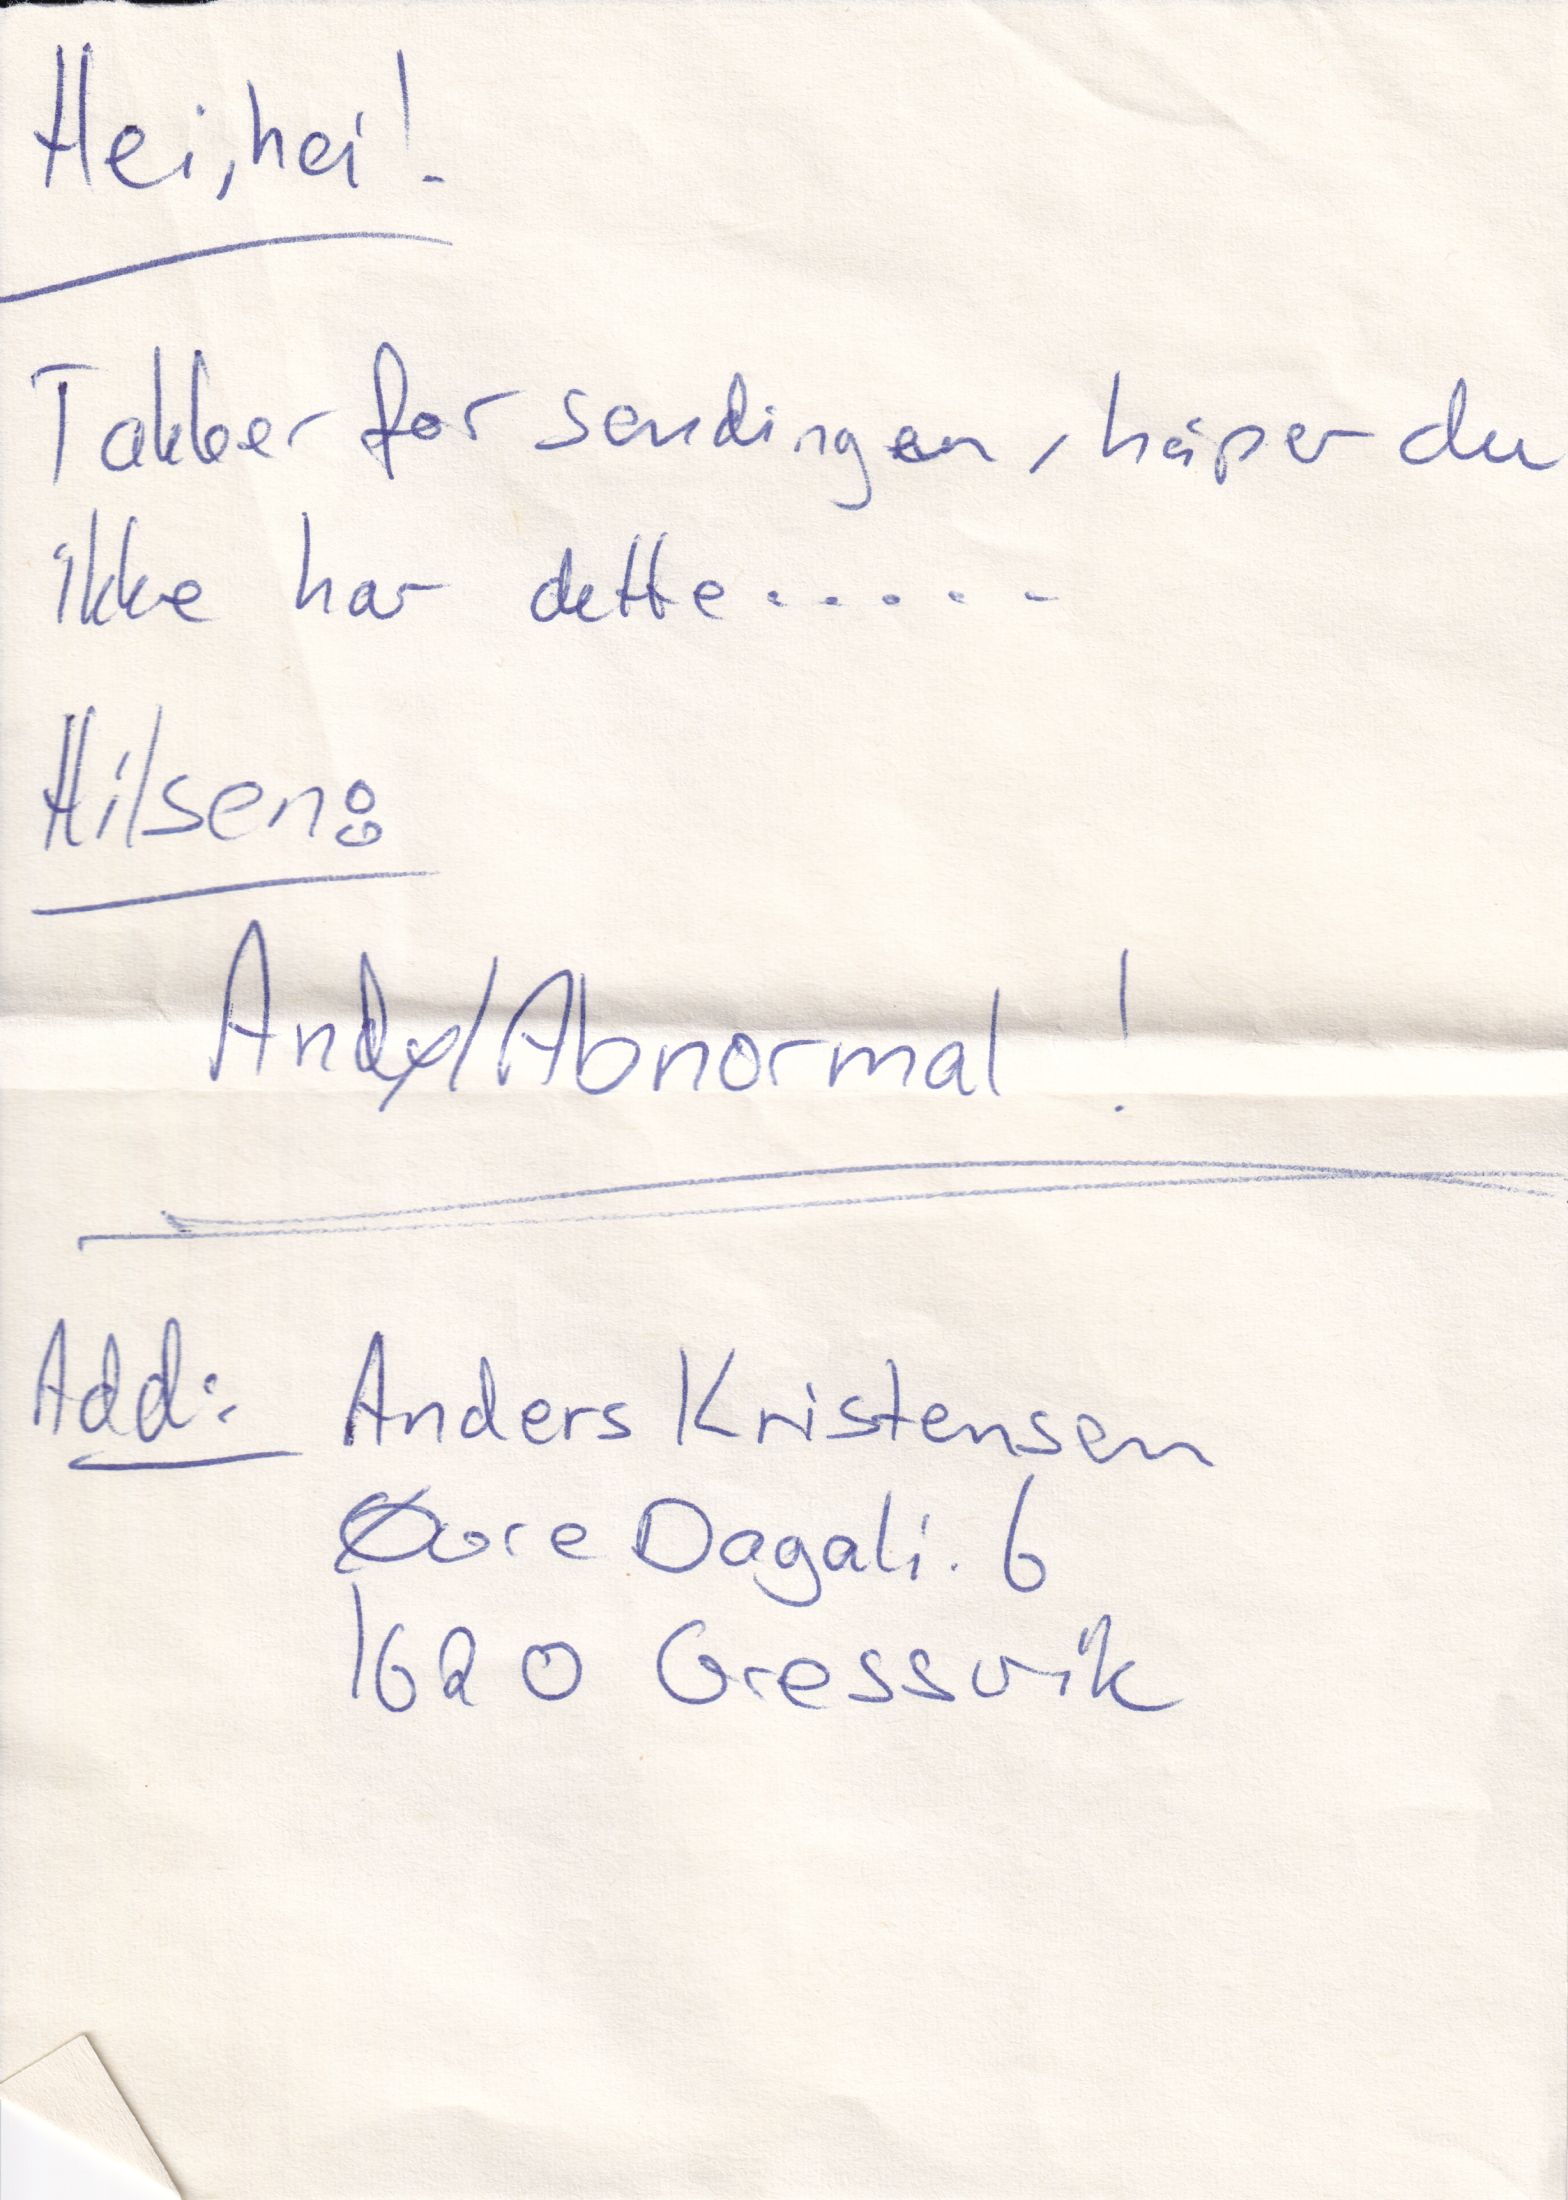 Hei, hei!
Takker for sendingen, håper du
ikke har dette......
Hilsen:
Andy/Abnormal !
Add: Anders Kristensen
Øvre Dagali. 6
1620 Gressvik